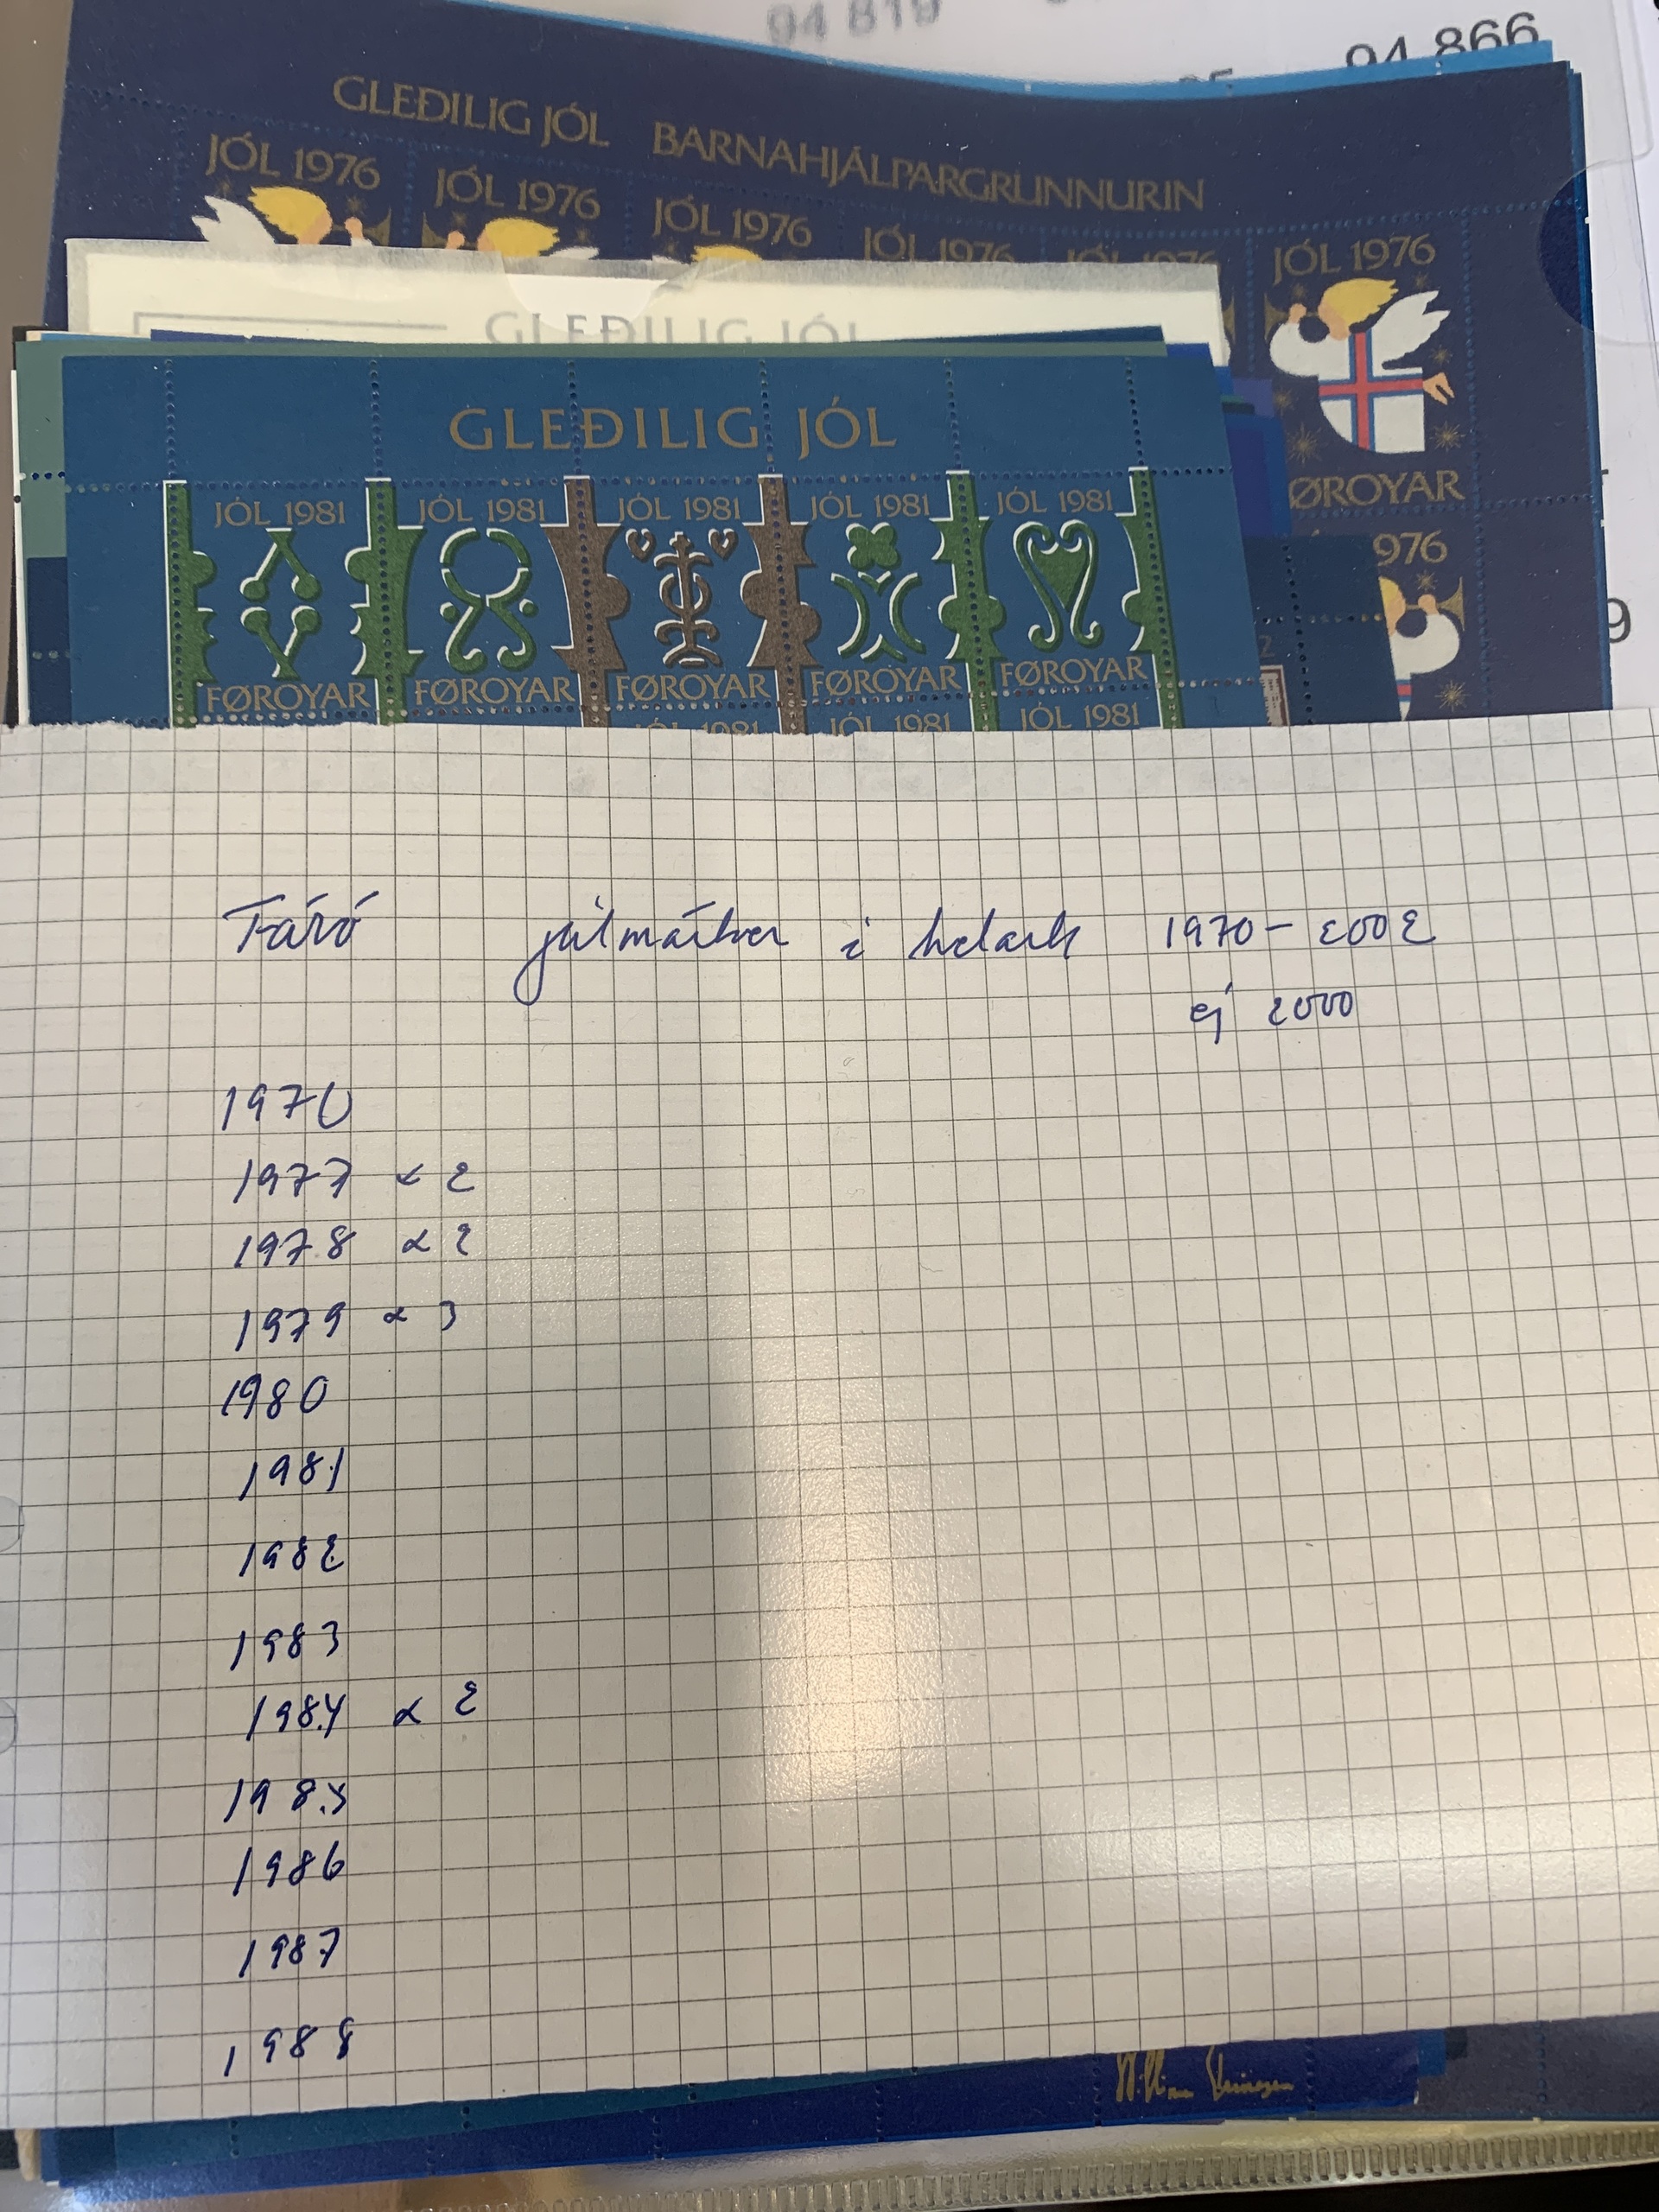 94 819
94 866
GLEÐILIG JÓL BARNAHJÁLPARGRUNNURIN
JÓL 1976 JÓL 1976 JÓL 1976 JÓL 1976 JÓL 1976 JÓL 1976
GLEÐILIG JÓL
FØROYAR
GLEÐILIG JÓL
1976
JÓL 1981 JÓL 1981 JÓL 1981 JÓL 1981 JÓL 1981
9
FØROYAR FØROYAR FØROYAR FØROYAR FØROYAR
JÓL 1981 JÓL 1981 JÓL 1981
Färö julmärken i helark 1970-2002
ej 2000
1970
1977 x 2
1978 x 2
1979 x 3
1980
1981
1982
1983
1984 x 2
1985
1986
1987
1988